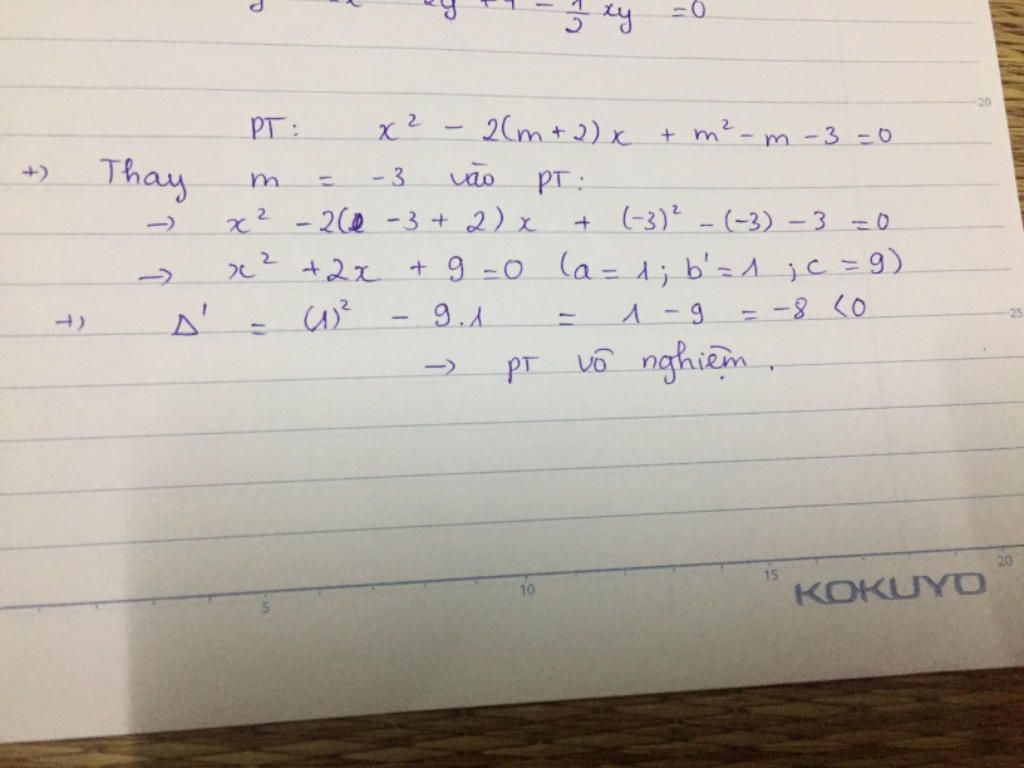 xy = 0
20
PT: x² - 2(m+2)x + m² - m - 3 = 0
+) Thay m = -3 vào PT:
→ x² - 2(-3 + 2)x + (-3)² - (-3) - 3 = 0
→ x² + 2x + 9 = 0 (a = 1; b' = 1; c = 9)
+) Δ' = (1)² - 9.1 = 1 - 9 = -8 < 0
25
→ PT vô nghiệm.
5 10 15 20
KOKUYO